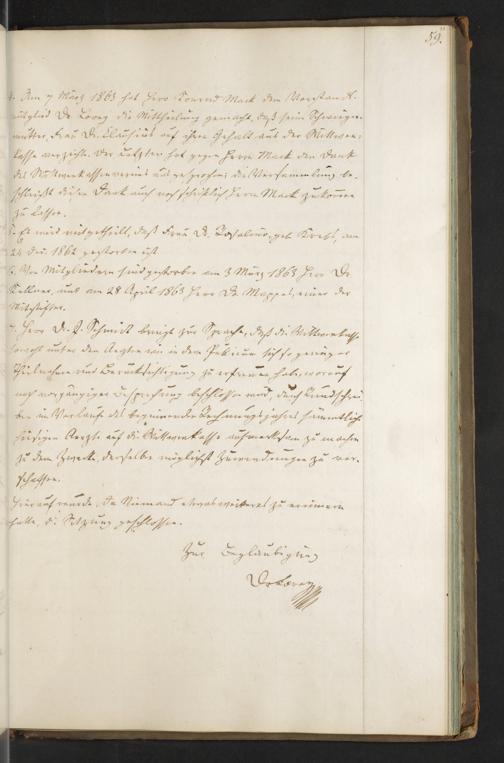 59.
4. Am 7 März 1863 hat Herr Konrad Mack dem Vorstands-
mitglied Dr Lorey die Mittheilung gemacht, daß seine Schwieger-
mutter, Frau Dr. Clausius auf ihren Gehalt aus der Wittwen-
kasse verzichte. Der hat gegen Herrn Mack den Dank
des Wittwenkassenvereins ausgesprochen; die Versammlung be-
schließt diesen Dank auch noch schriftlich Herrn Mack zukommen
zu lassen.
5. Es wird mitgetheilt, daß Frau Dr. geb. Krebs, am
24 Dec. 1862 gestorben ist.
6. Von Mitgliedern sind gestorben am 3 März 1863 Herr Dr
Kellner, und am 28 April 1863 Herr Dr Mappes, einer der
Mitstifter.
7. Herr Dr. A. Schmidt bringt zur Sprache, daß die Wittwenkasse
sowohl unter den Aerzten wie in dem Publicum sich so geringer
Theilnahme und Berücksichtigung zu erfreuen habe, worauf
nach vorgängiger Besprechung beschlossen wird, durch Rundschrei-
ben im Verlaufe des beginnenden Rechnungsjahres sämmtliche
hiesigen Aerzte auf die Wittwenkasse aufmerksam zu machen
zu dem Zwecke, derselben möglichst Zuwendungen zu ver-
schaffen.
Hierauf wurde, da Niemand etwas weiteres zu erinnern
hatte, die Sitzung geschlossen.
Zur Beglaubigung
Dr Lorey